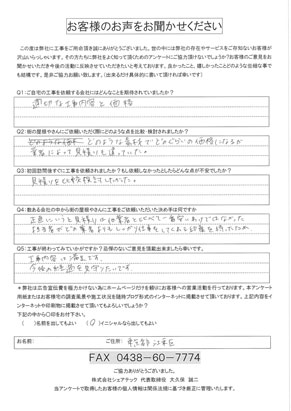 お客様のお声をお聞かせください
この度は弊社に工事をご用命頂き誠にありがとうございました。世の中には弊社の存在やサービスをご存知ないお客様が
沢山いらっしゃいます。その方たちの為にもよかったら下のアンケートにご協力頂けないでしょうか?お客様のご意見をお
聞かせいただき今後の活動に反映させていただきたいと考えております。良かったこと、嬉しかったことどのような些細な事で
も結構です。是非ご協力お願い致します。(出来るだけ具体的に書いて頂ければ幸いです)
Q1:ご自宅の工事を依頼する会社にはどんなことを期待されていましたか?
適切な工事内容と価格
Q2:他の屋根やさんにご依頼いただく際にどのような点を比較・検討されましたか?
どのような素材でどのくらいの価格になるか
業者によって見積りも違っていた。
Q3:初回訪問後すぐに工事を依頼されましたか?もし依頼しなかったとしたらどんな点が不安でしたか?
見積りを比較検討したかった。
Q4:数ある会社の中から当社に工事をご依頼いただいた決め手は何ですか
正直にいうと見積りは他業者と比べて一番安いわけではなかった
担当者がどの業者よりもしっかり仕事をしてくれる印象を持ったため
Q5:工事が終わってみていかがですか?忌憚のないご意見を頂戴出来ましたら幸いです。
工事内容は満足です。
今後の経過を見守りたいです。
*弊社は広告宣伝費を極力かけない為にホームページだけを頼りにお客様への営業活動を行っております。本アンケート
用紙またはお客様宅の調査風景や施工状況を随時ブログ形式のインターネットで掲載させて頂いております。上記内容をイ
ンターネットや印刷物に掲載させて頂いてもよろしいでしょうか?
下記の中から〇印をお付け下さい。
( )名前を出してもよい (〇)イニシャルなら出してもよい
お名前: ご住所: 東京都江東区
FAX 0438-60-7774
ご協力ありがとうございました。
株式会社シェアテック 代表取締役 大久保 誠二
当アンケートで取得したお客様の個人情報は関係法規に基づき厳正に管理いたします。